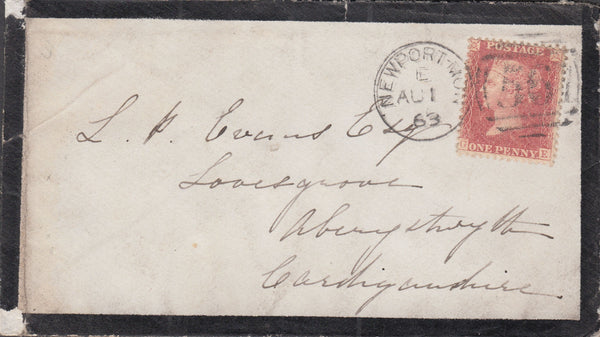 NEWPORT-MON
E
AU 1
63
POSTAGE
ONE PENNY
L. P. Evans Esq
Lovesgrove
Aberystwyth
Cardiganshire